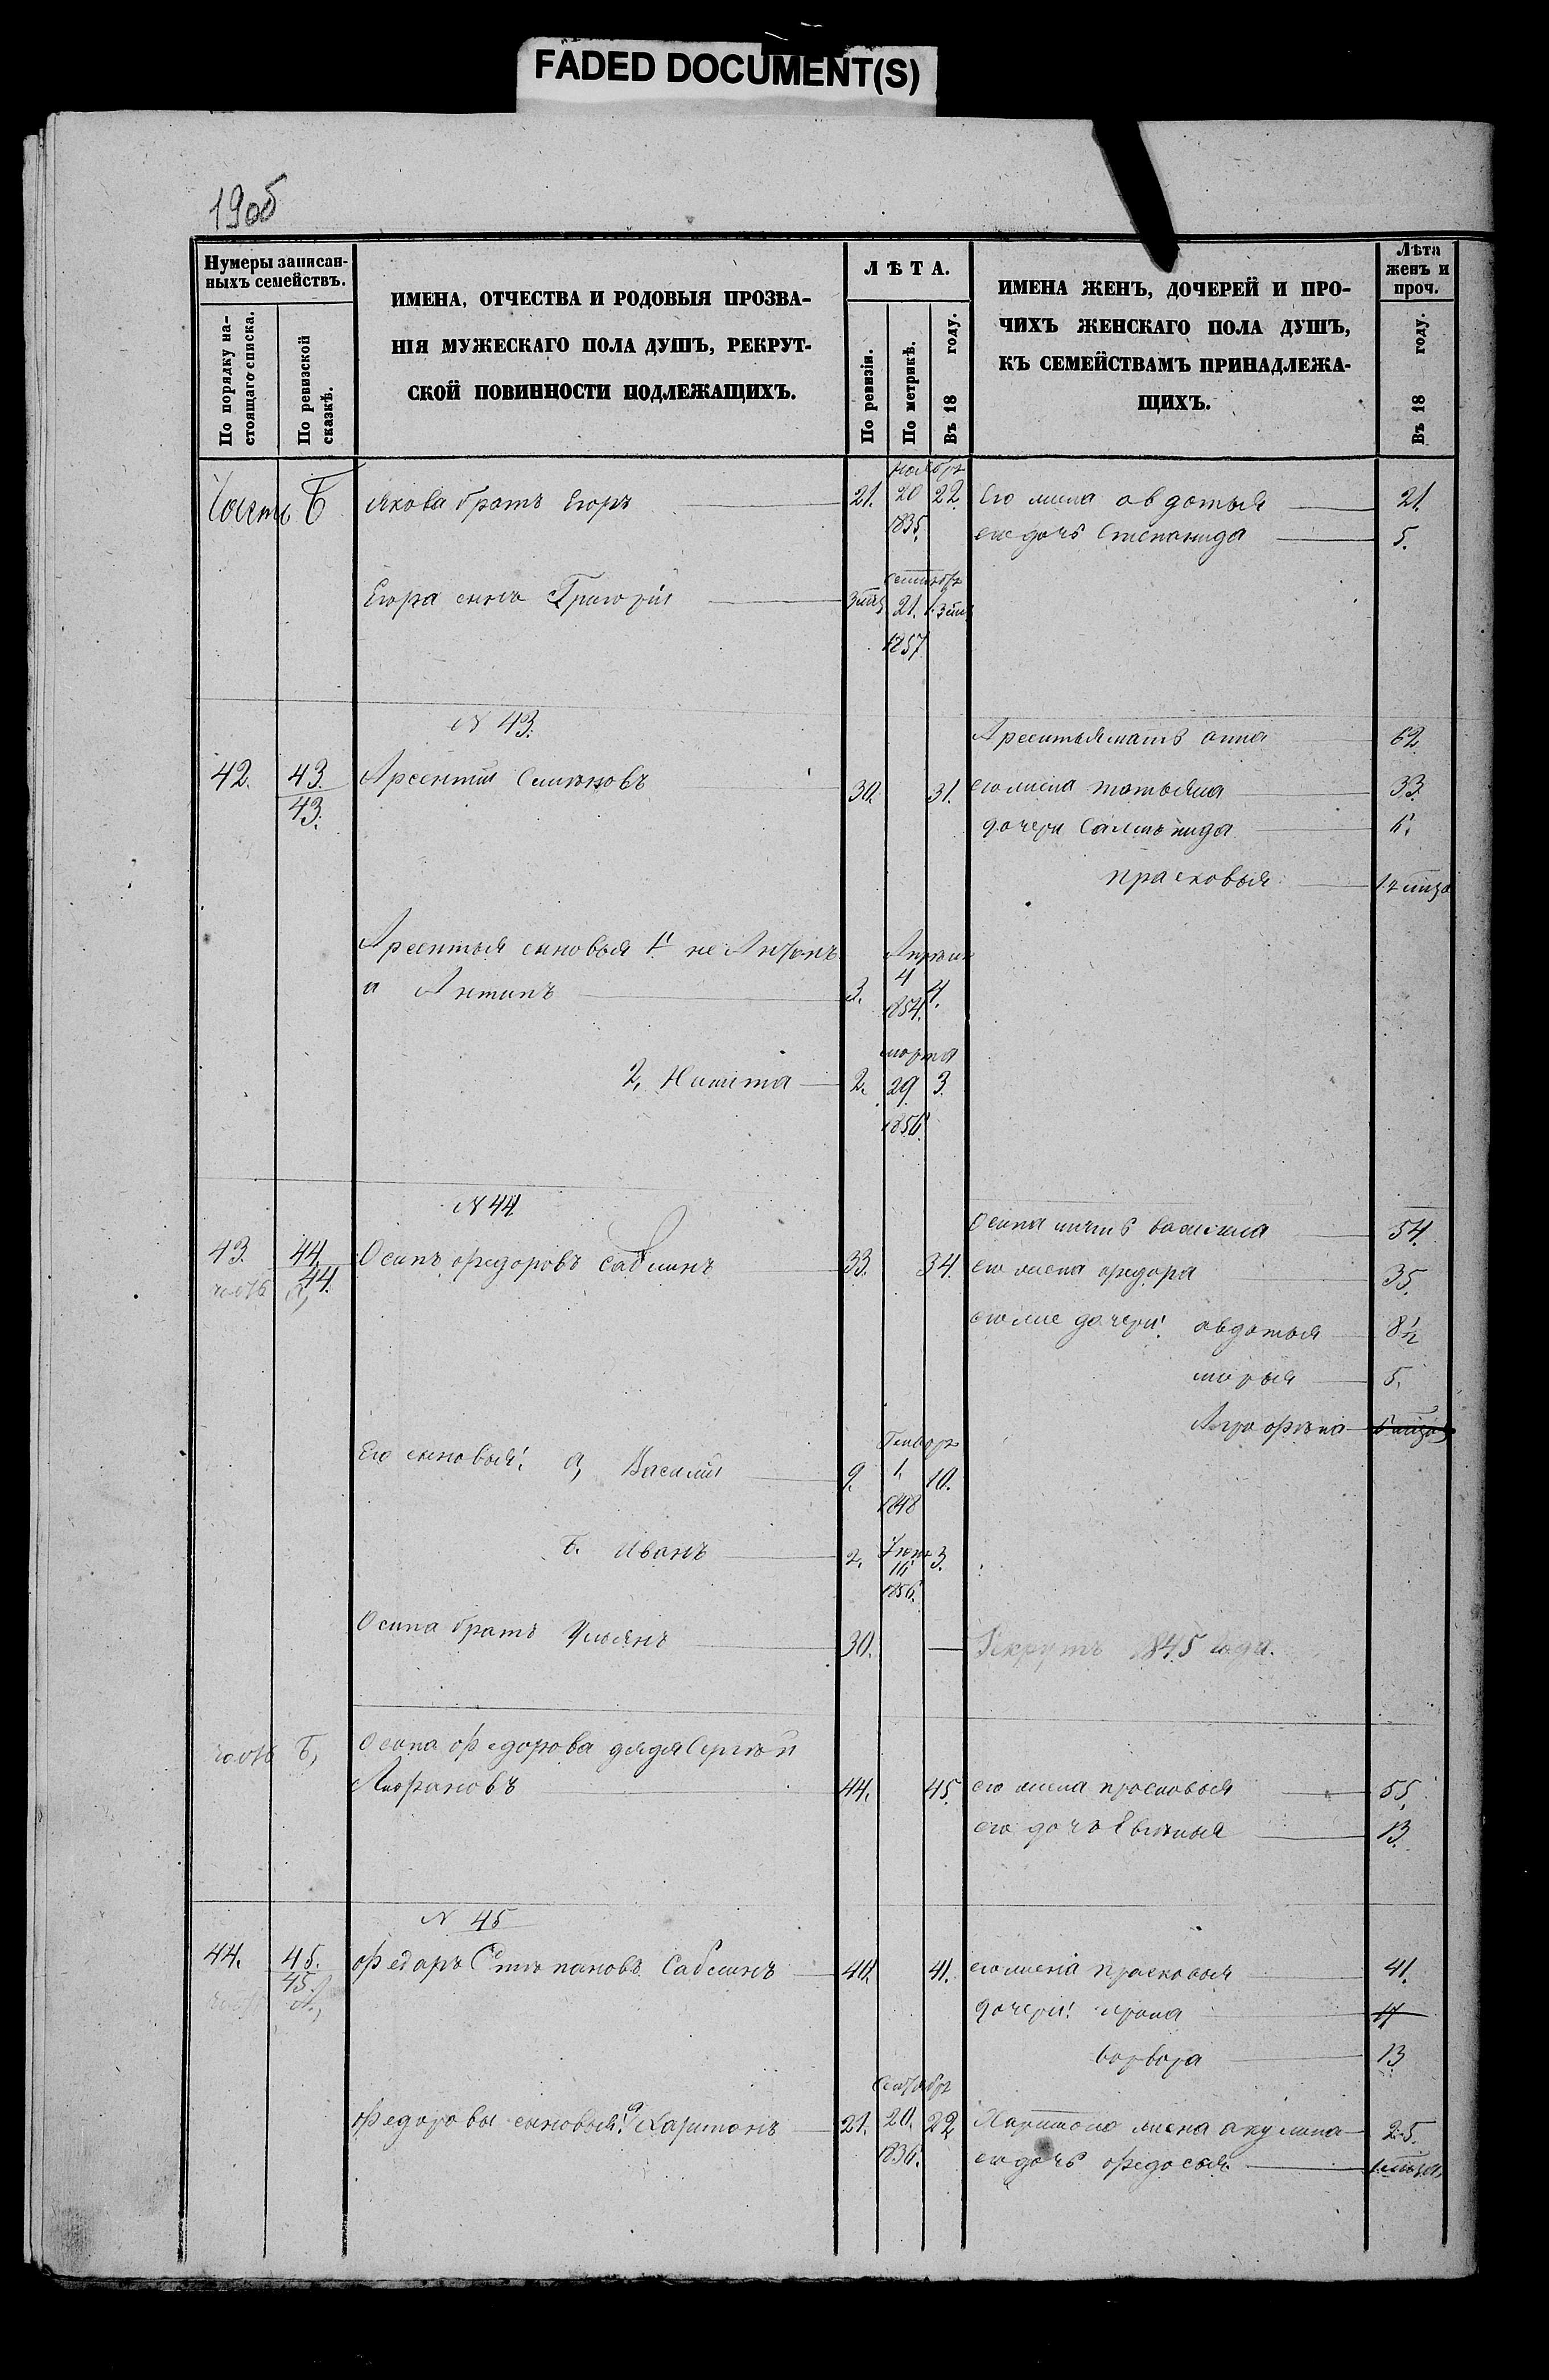 FADED DOCUMENT(S)
190б
Нумеры записан-
ныхъ семействъ.
По порядку на-
стоящаго списка.
По ревизской
сказкѣ.
ИМЕНА, ОТЧЕСТВА И РОДОВЫЯ ПРОЗВА-
НІЯ МУЖЕСКАГО ПОЛА ДУШЪ, РЕКРУТ-
СКОЙ ПОВИННОСТИ ПОДЛЕЖАЩИХЪ.
ЛѢТА.
По ревизіи.
По метрикѣ.
Въ 18 году.
ИМЕНА ЖЕНЪ, ДОЧЕРЕЙ И ПРО-
ЧИХЪ ЖЕНСКАГО ПОЛА ДУШЪ,
КЪ СЕМЕЙСТВАМЪ ПРИНАДЛЕЖА-
ЩИХЪ.
Лѣта
женъ и
проч.
Въ 18 году.
Часть Б Якова братъ Егоръ 21. Ноября 20 1835. 22. Его жена авдотья 21.
его дочь Степанида 5.
Егора сынъ Григорій Сентября 21. 1857
N 43.
Арсентья мать анна 62
42. 43. 43. Арсентій Семеновъ 30. 31. его жена татьяна 33.
дочери
прасковья
Арсентья сыновья
и Антипъ 3. Апрѣля 4 1854. 4.
2, Никита 2. марта 29. 1856. 3.
N 44
Осипа мать 54.
43. 44. 44. часть а, Осипъ федоровъ Саблинъ 33. 34. его жена федора 35.
его же дочери: авдотья 8 1/2
марья 5.
Аграфена
Его сыновья: а, Василій 9. Генваря 1. 1848 10.
Б. Иванъ 2. 1856. 3.
Осипа братъ Ульянъ 30. Рекрутъ 1845 года.
часть Б, Осипа федорова дядя Сергѣй
44. 45. его жена прасковья 55.
его дочь Евгенья 13.
N 45
44. 45. 45. часть А, федоръ Степановъ Саблинъ 40. 41. его жена прасковья 41.
дочери: 17
варвара 13
федоровы сыновья: а Харитонъ 21. Сентября 20. 1836. 22 Харитона жена акулина 25.
его дочь федосья